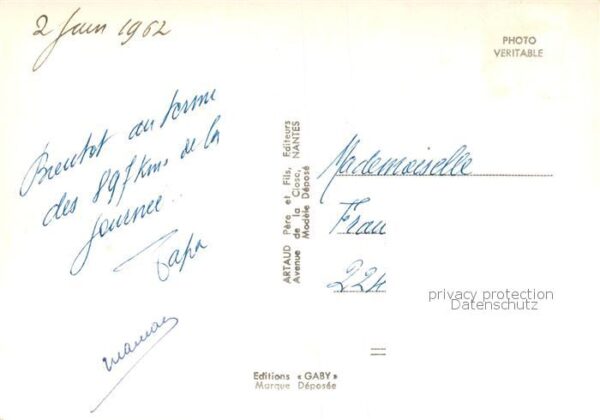 2 Juin 1962
PHOTO
VERITABLE
Bientot au terme
des 897 Kms de la
journée..
Papa
maman
ARTAUD Père et Fils, Editeurs
Avenue de la Close, NANTES
Modèle Déposé
Mademoiselle
Frau
224
privacy protection
Datenschutz
Editions « GABY »
Marque Déposée